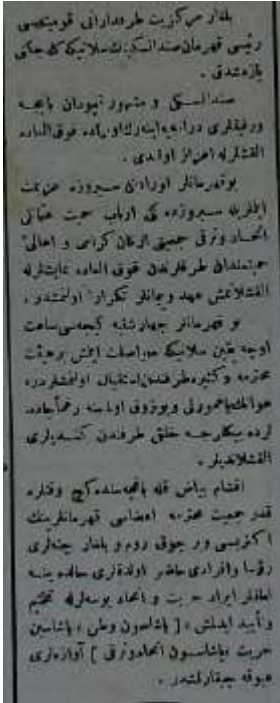 بلغار مركزيت طرفدارانى قوميته‌سى
رئيسى قهرمان صندانسكينك سلانيكه كله‌جكنى
يازمشدق.
صندانسكى و مشهور
ورفيقلرى درامه‌يه فوق العاده
القشلرله اولندى.
بو قهرمانلر اورادن سيروزه عزيمت
سيروزده كى ارباب حميت عثمانى
اتحاد وترقى جمعيتى اركان كرامى و اهالئ
حميتمندان طرفلرندن فوق العاده
القشلانمش عهد و پيمانلر تكرار اولنمشدر.
بو قهرمانلر چهارشنبه كيجه‌سى ساعت
اوچه يقين سلانيكه مواصلت ايتمش برهيئت
محترمه و كثيره طرفندن استقبال اولنمشلردر.
هوانك ياغمورلى وبوزوق اولمسنه رغماً جاده
لرده بيكلرجه خلق طرفندن كنديلرى
القشلانديلر.
اقشام بياض قله باغچه‌سنده كيچ وقتلره
قدر جمعيت محترمه اعضاسى قهرمانلرينك
اكثريسى و بر چوق روم و بلغار چته‌لرى
رؤسا وافرادى حاضر اولدقلرى حالده ينه
ايراد حريت و اتحاد بوسه‌لرله تختيم
و تأييد ايدلمش، [ياشاسون وطن، ياشاسين
حريت، ياشاسون اتحاد وترقى] آوازه‌لرى
عيوقه چيقارلمشدر.